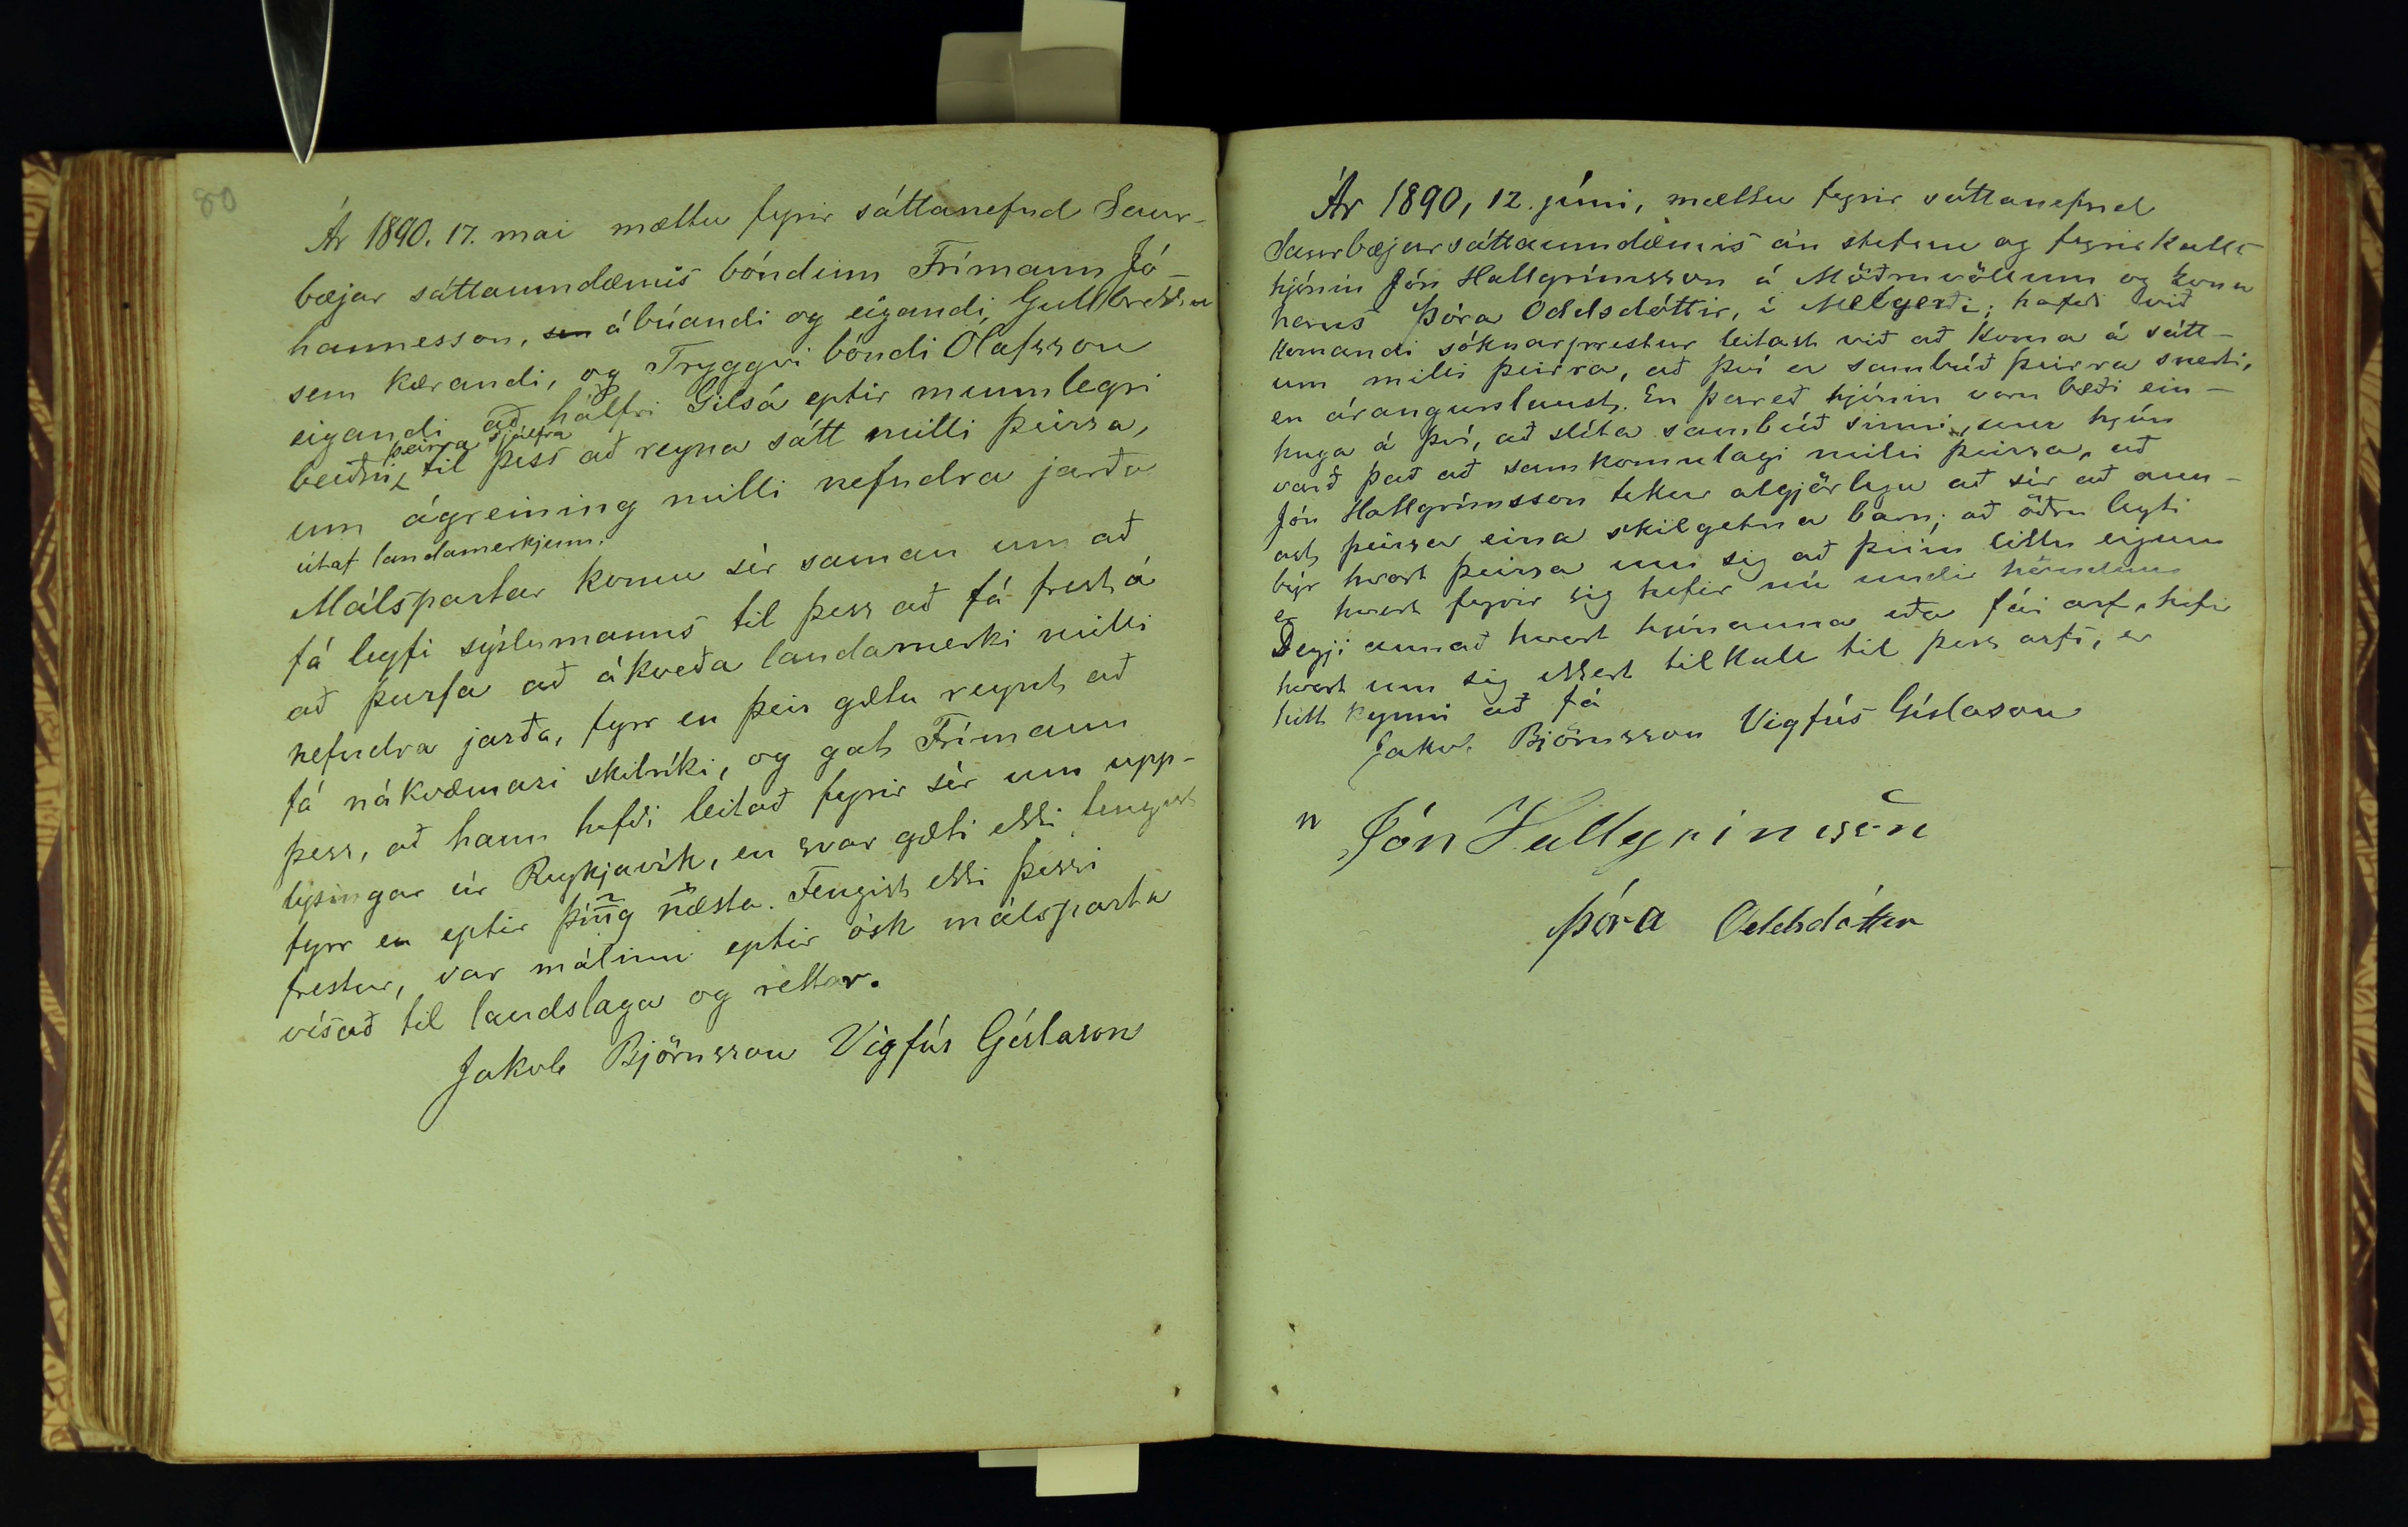 80
Ár 1890. 17. mai mættu fyrir sáttanefnd Saur-
bæjar sáttaumdæmis bóndinn Frímann Jó-
hannesson, sem ábúandi og eigandi Gullbrekku
sem kærandi, og Tryggvi bóndi Ólafsson
eigandi að hálfri Gilsá eptir munnlegri
beiðni þeirra sjálfra til þess að reyna sátt milli þeirra,
um ágreining milli nefndra jarða
útaf landamerkjum.
Málspartar komu sér saman um að
fá leyfi sýslumanns til þess að fá frest á
að þurfa að ákveða landamerki milli
nefndra jarða, fyrr en þeir gætu reynt að
fá nákvæmari skilríki, og gat Frímann
þess, að hann hefði leitað fyrir sér um upp-
lýsingar úr Reykjavík, en svar gæti ekki fengist
fyrr en eptir þing næsta. Fengist ekki þessi
frestur, var málinu eptir ósk málsparta
vísað til landslaga og rettar.
Jakob Björnsson Vigfús Gíslason
Ár 1890, 12. júni, mættu fyrir sáttanefnd
Saurbæjarsáttaumdæmis án stefnu og fyrirkalls
hjónin Jón Hallgrímsson á Möðruvöllum og kona
hans Þóra Oddsdóttir, í Melgerði; hafði við
komandi sóknarprestur leitast við að koma á sátt-
um milli þeirra, að því er sambúð þeirra snerti,
en árangurslaust. En þareð hjónin voru bæði ein-
huga á því, að slíta sambúð sinni, sem hjón
varð það að samkomulagi milli þeirra, að
Jón Hallgrímsson tekur algjörlega að sér að ann-
ast þeirra eina skilgetna barn; að öðru leyti
býr hvort þeirra um sig að þeim litlu eigum
er hvert fyrir sig hefir nú undir höndum
Deyji annað hvort hjónanna eða fái arf, hefir
hvort um sig ekkert tilkall til þess arfs, er
hitt kynni að fá
Jakob Björnsson Vigfús Gíslason
Jón Hallgrimsson
Þóra Oddsdóttir